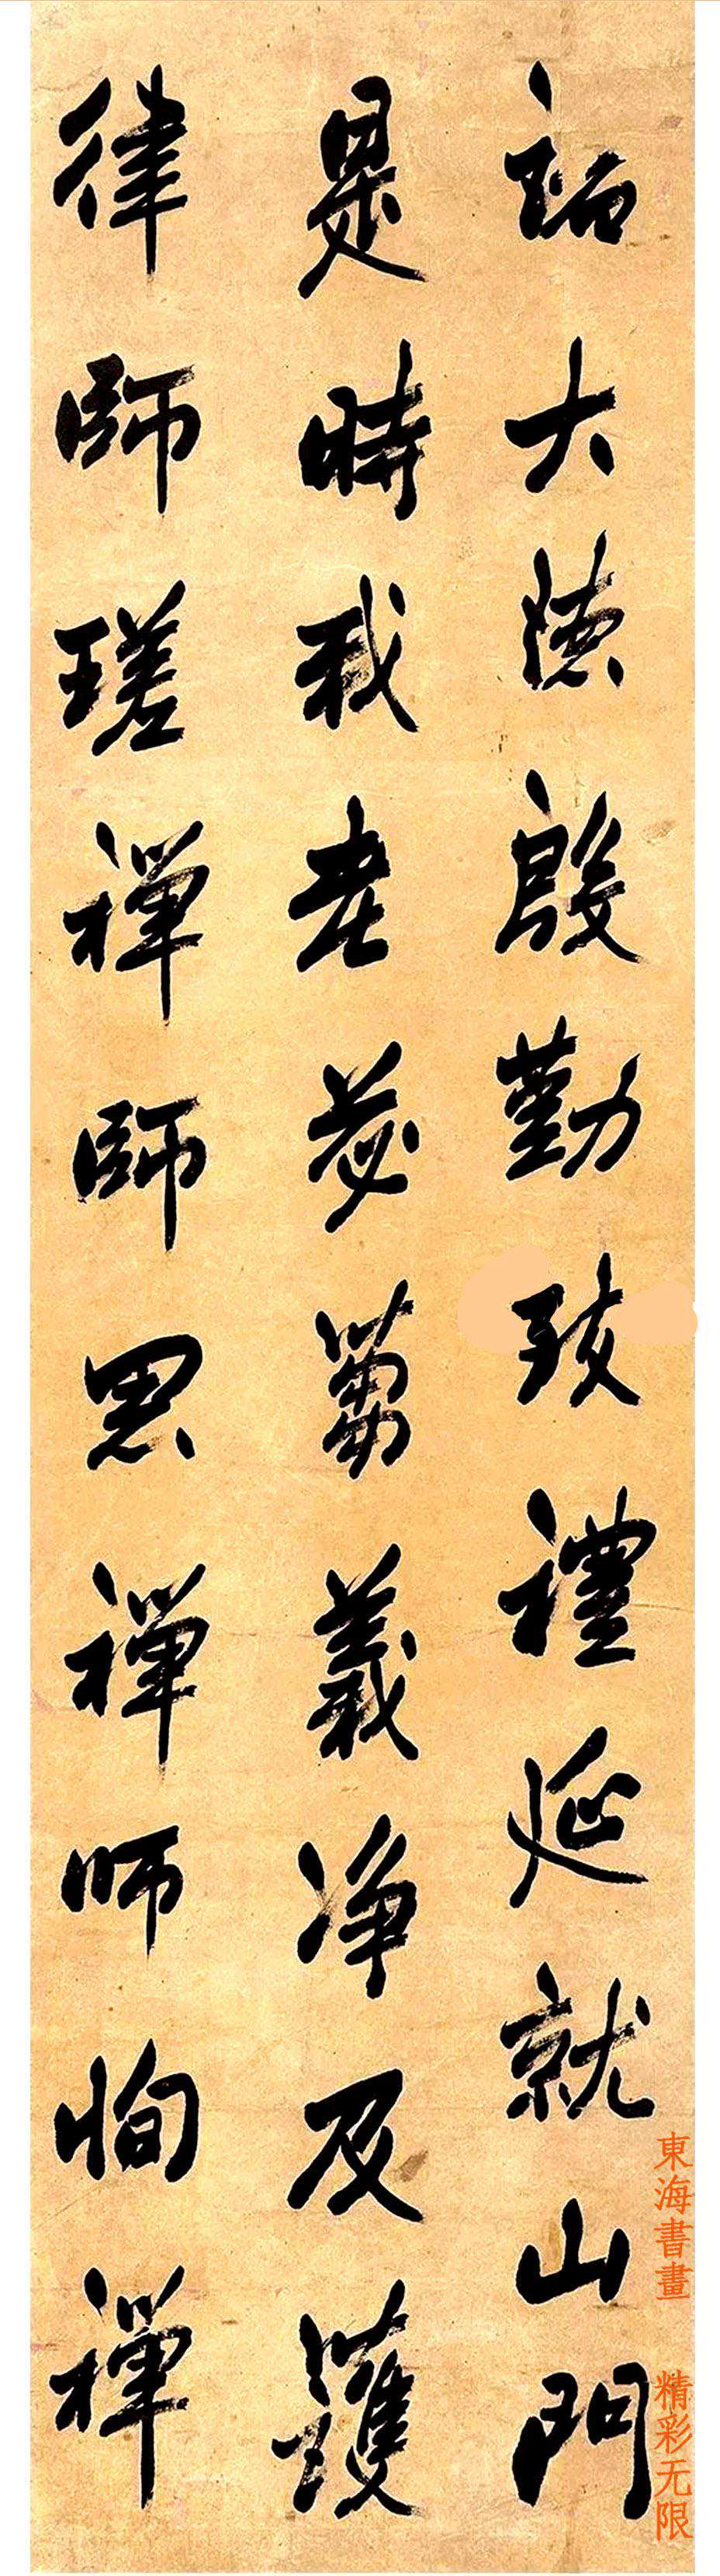 大德殷勤致禮延就山門
是時我老苾蒭義净及護
律師瑳禪師思禪师恂禪
東海書畫 精彩无限